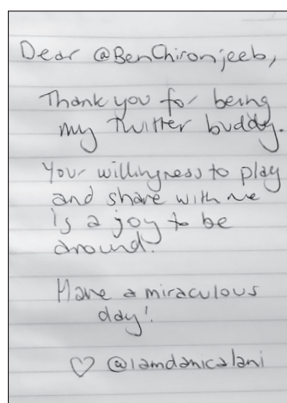 Dear @BenChironjeeb,
Thank you for being
my Twitter buddy.
Your willingness to play
and share with me
is a joy to be
around.
Have a miraculous
day!
♡ @iamdanicalani